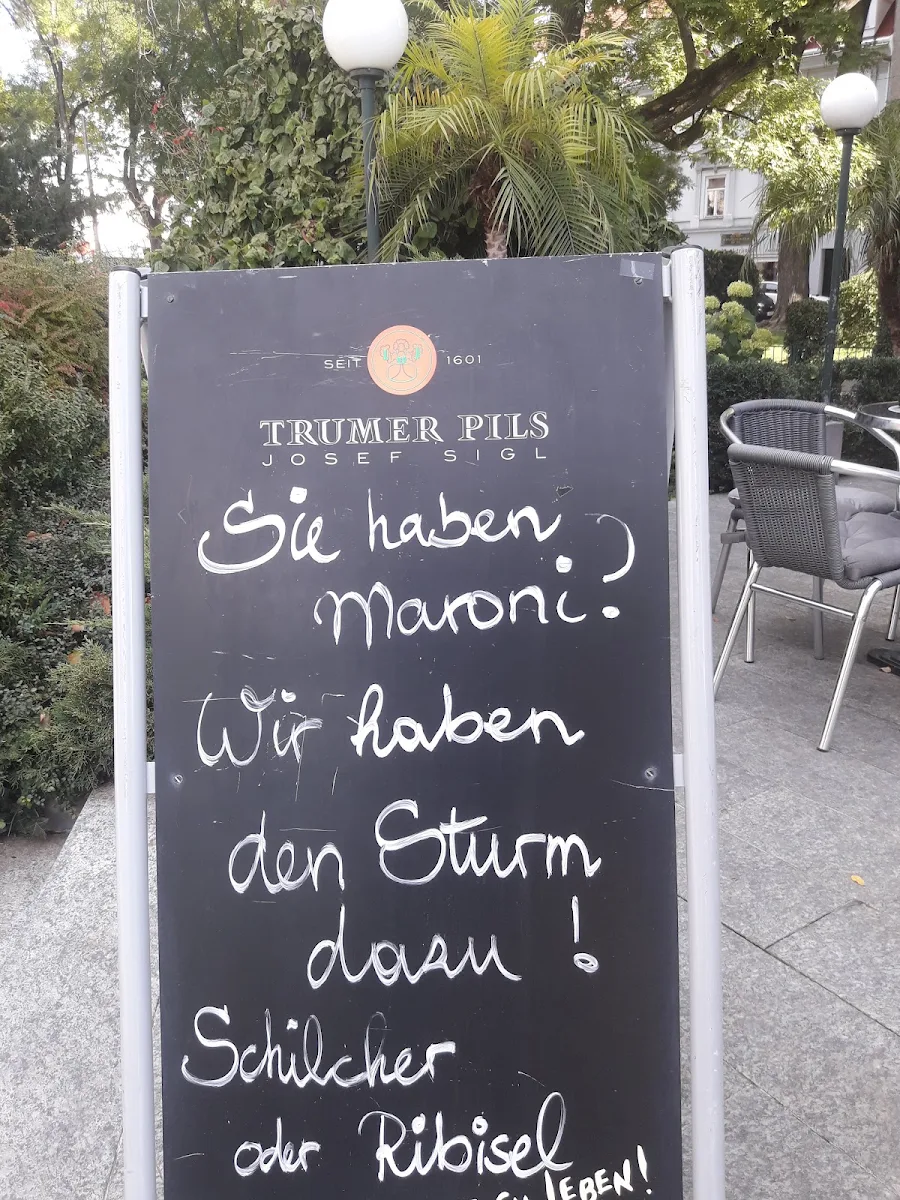 SEIT 1601
TRUMER PILS
JOSEF SIGL
Sie haben
Maroni?
Wir haben
den Sturm
dazu!
Schilcher
oder Ribisel
LEBEN!